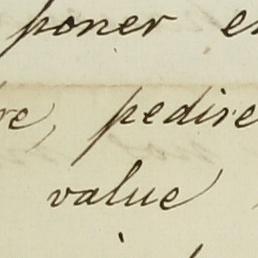 poner e
re, pedire
value